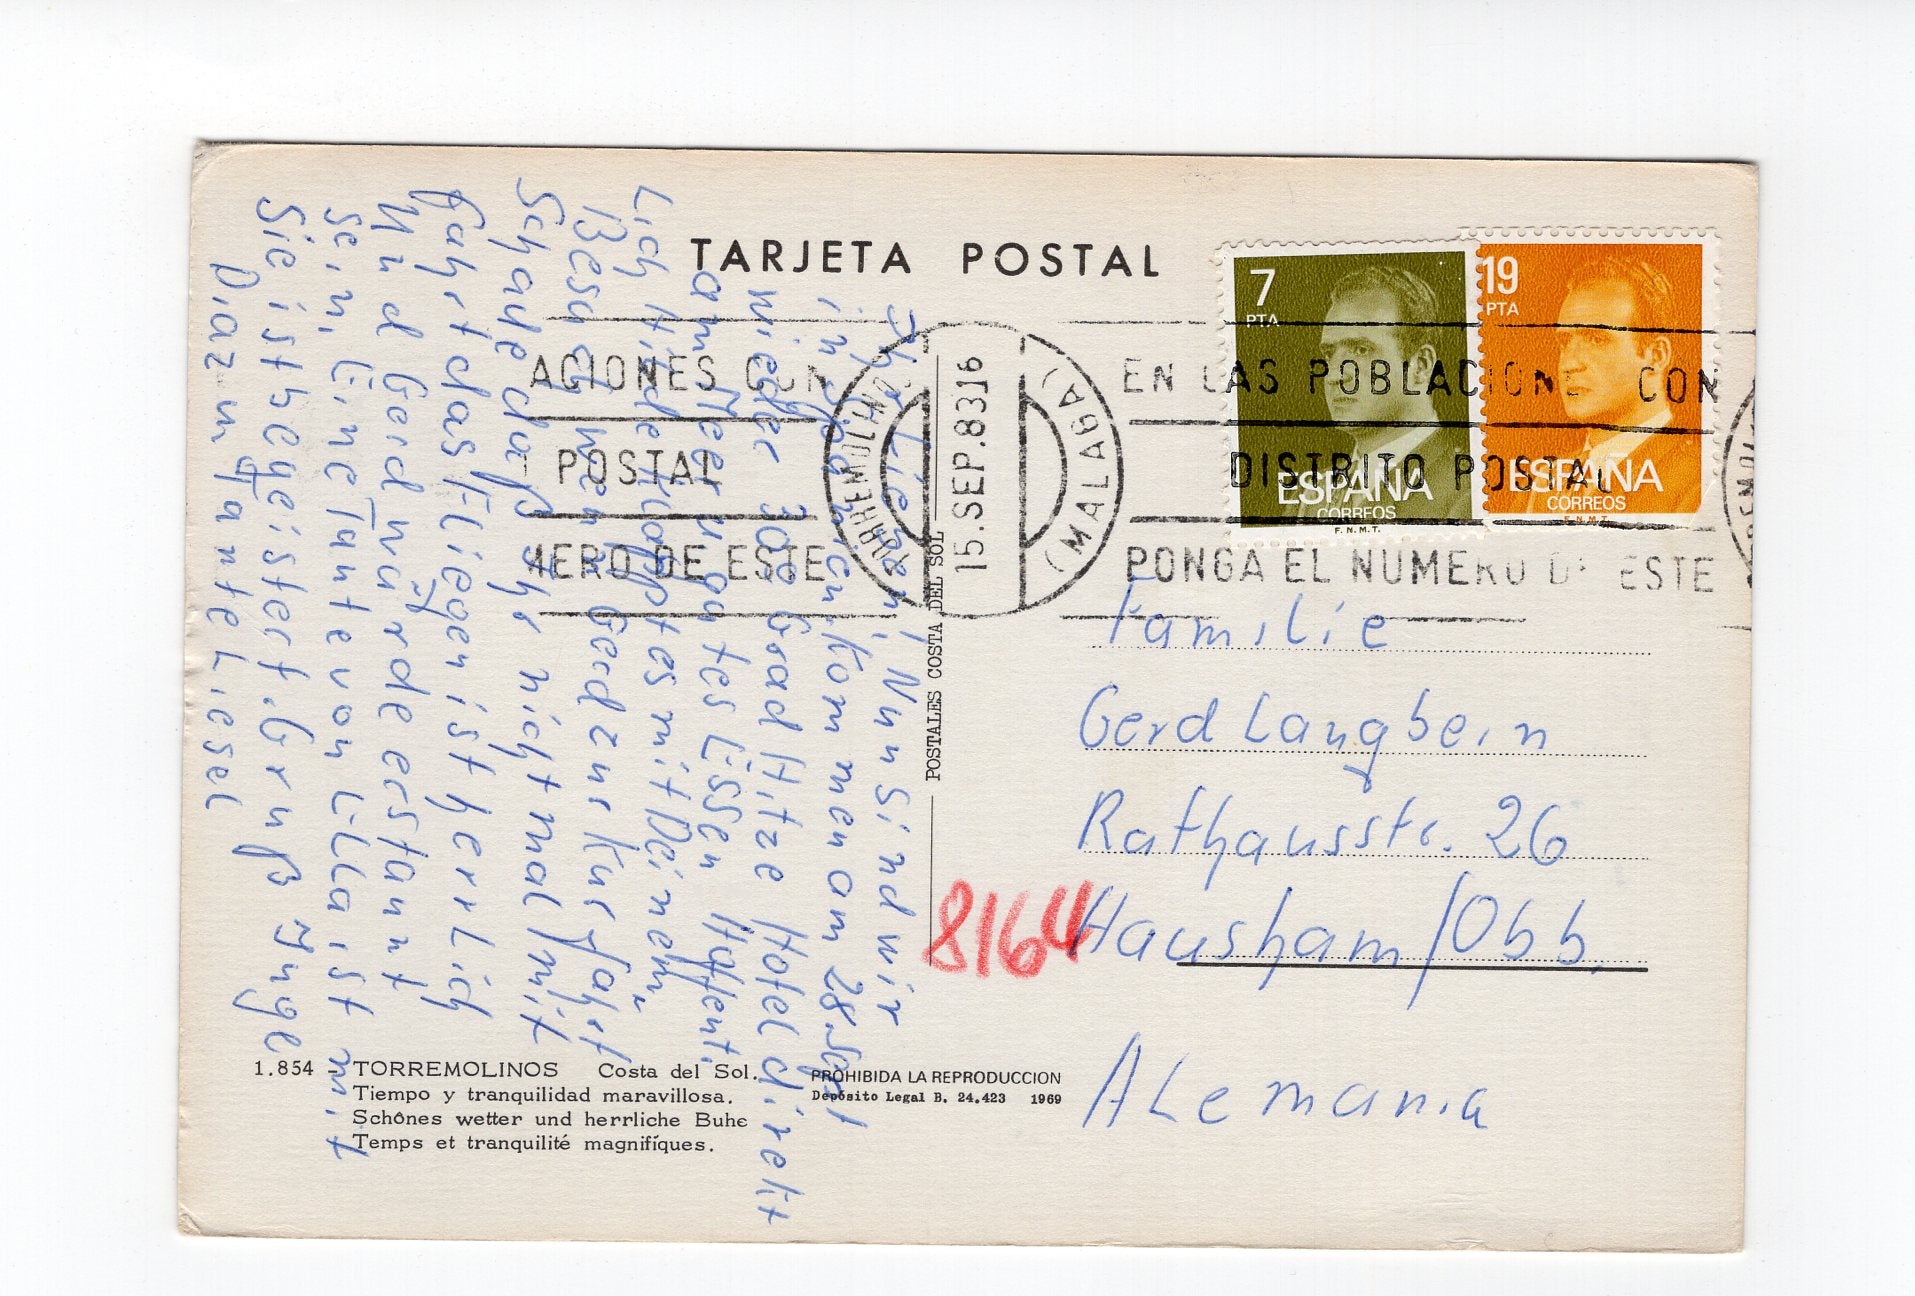 TARJETA POSTAL
7
PTA
ESPAÑA
CORREOS
F.N.M.T.
19
PTA
ESPAÑA
CORREOS
F.N.M.T.
ACIONES CON
POSTAL
MERO DE ESTE
TORREMOLINOS
15.SEP.83 16
(MALAGA)
EN LAS POBLACIONE CON
DISTRITO POSTAL
PONGA EL NUMERO DE ESTE
Ihr Lieben! Nun sind wir
in Spanien. Kommen am 28. Sept
wieder 30 Grad Hitze Hotel direkt
am Meer u. gutes Essen Hoffent.
lich Hilde klappt es mit Deinem
Besuch wenn Gerd zur Kur fährt
Schade daß Ihr nicht mal mit
fahrt das Fliegen ist herrlich
Und Gerd würde erstaunt
sein, Eine Tante von Lilla ist mit
Sie ist begeistert. Gruß Inge
Diaz u Tante Liesel
POSTALES COSTA DEL SOL
Familie
Gerd Langbein
Rathausstr. 26
8164 Hausham/Obb.
Alemania
1.854 - TORREMOLINOS Costa del Sol.
Tiempo y tranquilidad maravillosa.
Schônes wetter und herrliche Buhe
Temps et tranquilité magnifiques.
PROHIBIDA LA REPRODUCCION
Depósito Legal B. 24.423 1969